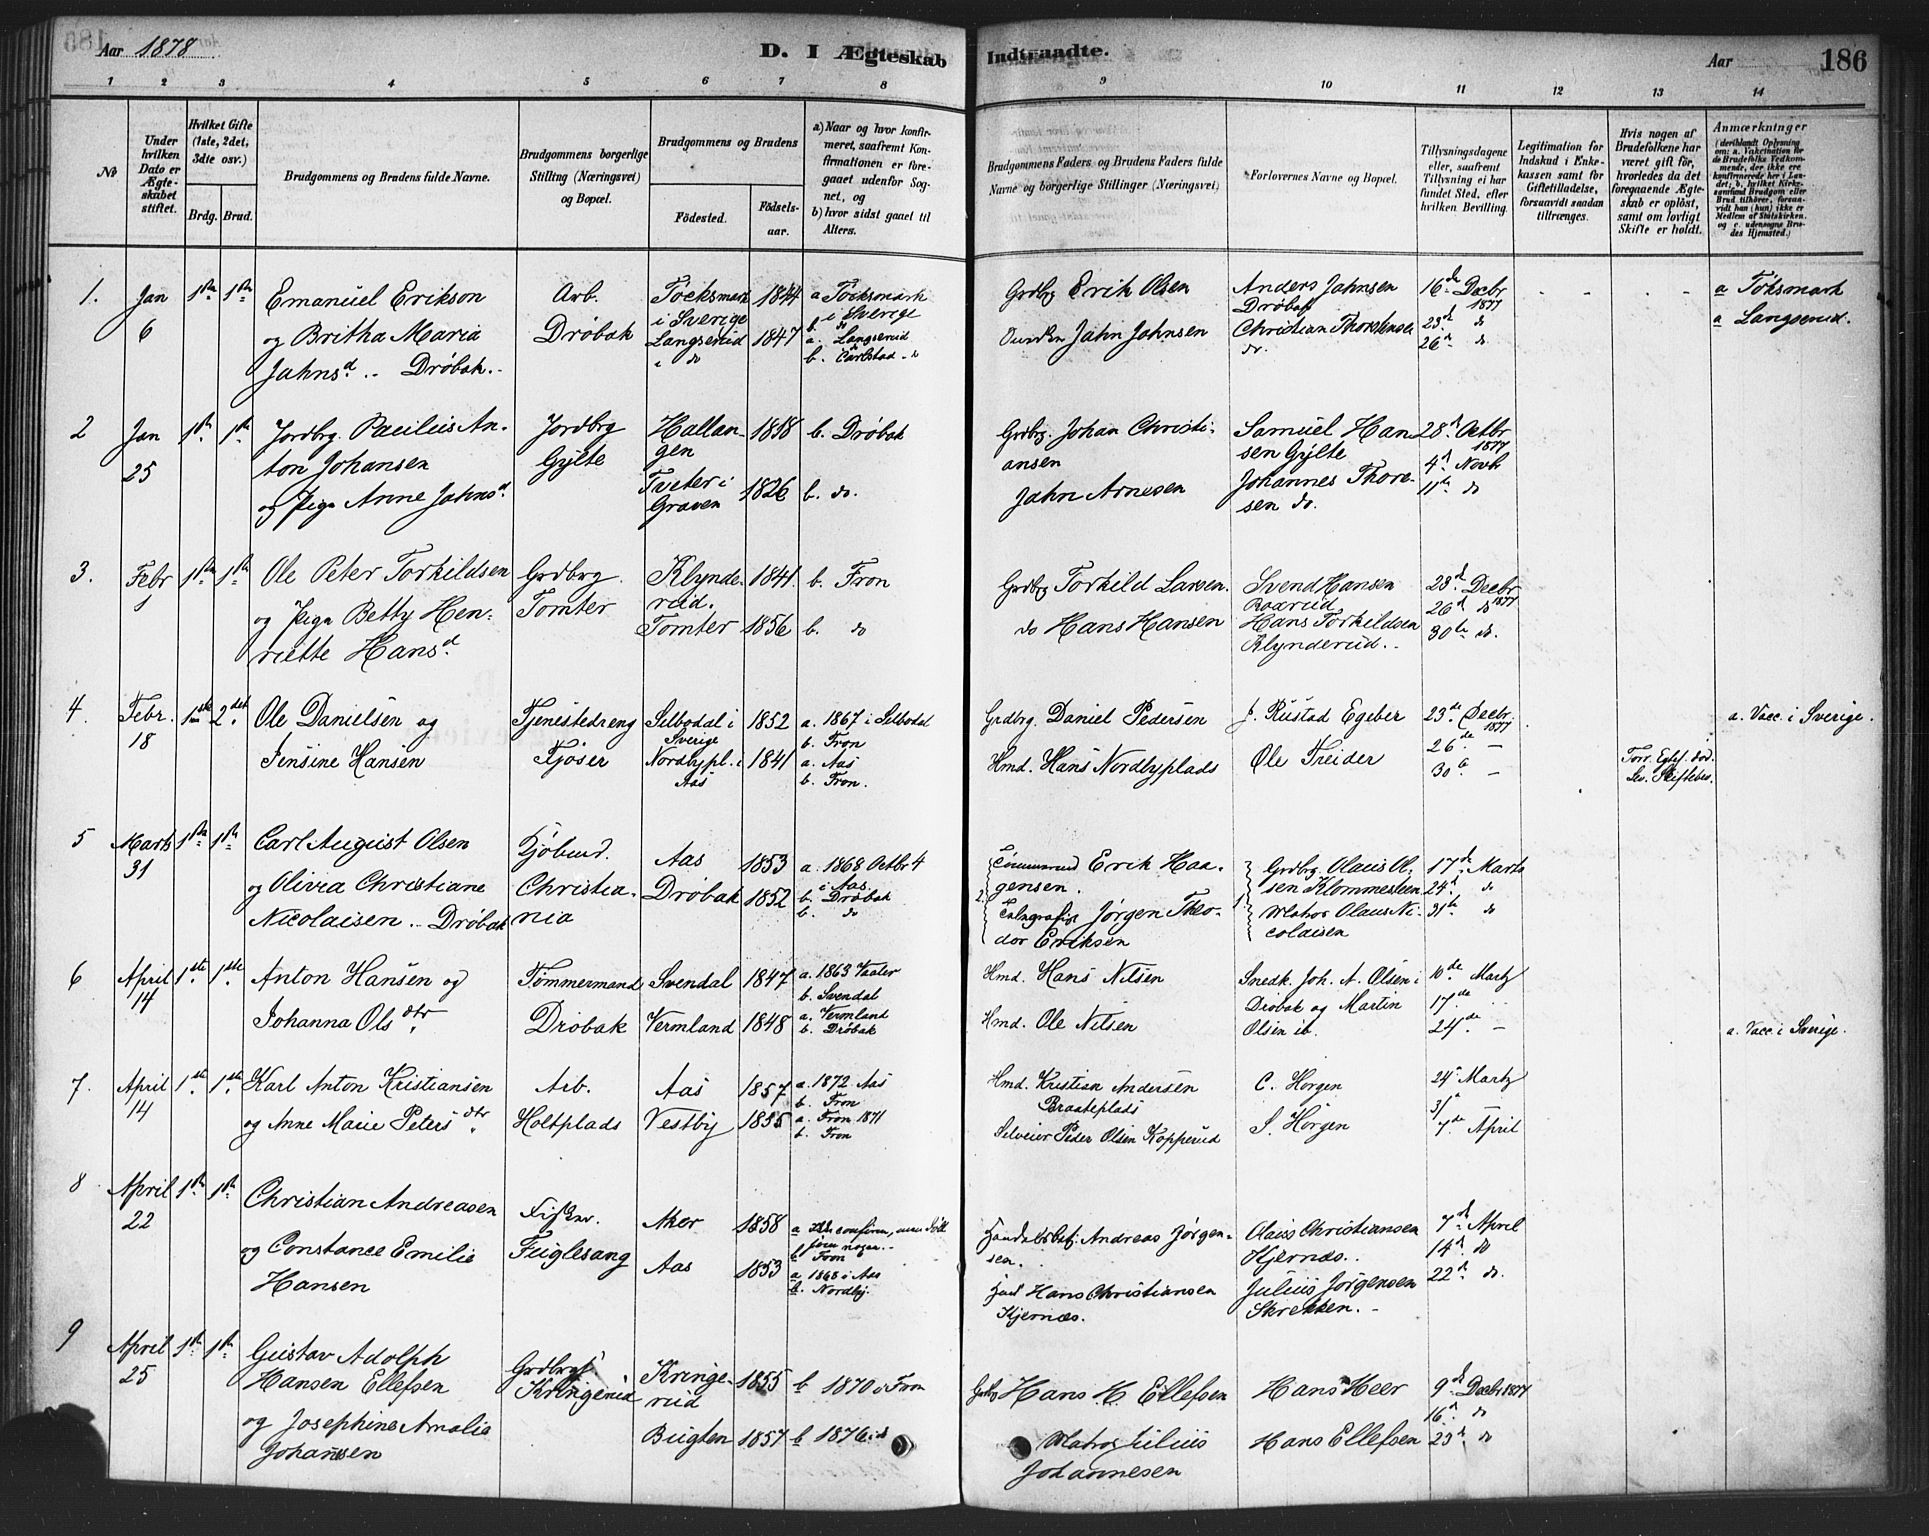 Aar 1878.
D. I Ægteskab
Indtraadte.
Aar
186
1 2 3 4 5 6 7 8 9 10 11 12 13 14
No
Under hvilken Dato er Ægteskabet stiftet.
Hvilket Gifte (1ste, 2det, 3die osv.)
Brdg. Brud.
Brudgommens og Brudens fulde Navne.
Brudgommens borgerlige Stilling (Næringsvei) og Bopæl.
Brudgommens og Brudens
Födested.
Födsels-aar.
a) Naar og hvor konfirmeret, saafremt Konfirmationen er foregaaet udenfor Sognet, og
b) hvor sidst gaaet til Alters.
Brudgommens Faders og Brudens Faders fulde Navne og borgerlige Stillinger (Næringsvei)
Forlovernes Navne og Bopæl.
Tillysningsdagene eller, saafremt Tillysning ei har fundet Sted, efter hvilken Bevilling.
Legitimation for Indskud i Enkekassen samt for Giftetilladelse, forsaavidt saadan tiltrænges.
Hvis nogen af Brudefolkene har været gift för, hvorledes da det foregaaende Ægteskab er oplöst, samt om lovligt Skifte er holdt.
Anmærkninger
(deriblandt Oplysning om: a. Vakcination for de Brudefolks Vedkommende, der ikke ere konfirmerede her i Landet; b. hvilket Kirkesamfund Brudgom eller Brud tilhörer, forsaavidt han (hun) ikke er Medlem af Statskirken, og c. udensogns Brudes Hjemsted.)
1. Jan 6
1ste 1ste
Emanuel Erikson
og Britha Maria
Jahnsd. Drøbak.
Arb.
Drøbak
Töcksmark i Sverige 1844
Langserud i do 1847
a Töcksmark i Sverige
b. do
a. Langserud
b. Carlstad do
Grdbrg Erik Olsen
Jahn Jahnsen
Anders Jahnsen
Drøbak
Christian Thorstensen
do.
16de Decbr 1877
23d do
26d do
a Töksmark
a Langserud.
2 Jan 25
1ste 1ste
Jordbrg. Paulus An-
ton Johansen
og Pige Anne Jahnsd.
Jordbrg
Gylte
Hallan-
gen 1818
Tveter i
Graven 1826
b. Drøbak
b. do.
Grdbrg. Johan Christi-
ansen
Jahn Arnesen
Samuel Han-
sen Gylte
Johannes Thore-
sen do.
28d Octbr 1877
4d Novb
11te do
3. Febr 1
1ste 1ste
Ole Peter Torkildsen
og Pige Betty Hen-
riette Hansd.
Grdbrg.
Tomter
Klynde-
rud. 1841.
Tomter 1856
b. Fron
b. do
Grdbrg Torkild Larsen.
do Hans Hansen
Svend Hansen
Baarud
Hans Torkildsen
Klynderud.
23d Decbr 1877
26d do
30te do.
4. Febr. 18
1ste 2det
Ole Danielsen og
Jensine Hansen
Tjenestedreng
Tjøser
Silbodal i Sverige 1852
Nordbypl. i Aas 1841
a. 1867 i Silbodal
b. Fron
a. Aas
b. Fron.
Grdbrg. Daniel Pedersen
Hmd. Hans Nordbyplads
J. Rustad Egeber
Ole Treider
23de Decbr. 1877
26de —
30te —
Forr. Egtef. död.
Lev. Skiftebev.
a. Vacc. i Sverige.
5 Marts 31
1ste 1ste
Carl August Olsen
og Olivia Christiane
Nicolaisen. Drøbak
Christia-
nia
Aas 1853
Drøbak 1852
a. 1868 Octbr 4 i Aas.
b. Drøbak
b. do
Erik Haa-
gensen.
Jørgen Theo-
dor Eriksen
Grdbrg. Olaus Ol-
sen Klommesteen
Matros Olaus Ni-
colaisen
17de Marts
24d do
31te do
6 April 14
1ste 1ste
Anton Hansen og
Johanna Olsdtr
Tömmermand
Drøbak
Svendal 1847
Vermland 1848
a. 1863 Vaaler
b. Svendal
a. Vermland
b. Drøbak
Hmd. Hans Nilsen
Hmd. Ole Nilsen
Snedk. Joh. A. Olsen i
Drøbak og Martin
Olsen ib.
10de Martz
17de
24de —
a. Vacc. i Sverige.
7. April 14
1ste 1ste
Karl Anton Kristiansen
og Anne Marie Petersdtr
Arb.
Holtplads
Aas 1857
Vestby 1855
a. 1872 Aas
b. Fron
a. Fron 1871
b. Fron
Hmd. Kristian Andersen
Braateplads
Selveier Peder Olsen Kopperud
C. Horgen
S. Horgen
24 Martz
31
7de April
8 April 22
1ste 1ste
Christian Andreasen
og Constance Emilie
Hansen
Fisker.
Fuglesang
Aker 1858
Aas 1853
b. Fron
a. 1868 i Aas
b. Nordby
Andreas Jørgen-
sen.
Hans Christiansen
Kjernæs.
Olaus Christiansen
Kjernæs.
Julius Jørgensen
Skrekken.
7d April
14d do
22d do.
9 April 25
1ste 1ste
Gustav Adolph
Hansen Ellefsen
og Josephine Amalia
Johansen
Grdbrg
Kringerud
Kringe-
rud 1855
Bugten 1857
b 1870 i Fron
b 1876 i do
Grdbrg Hans H. Ellefsen
Matros Julius
Johannesen
Hans Heer
Hans Ellefsen
9de Decbr 1877
16d do
23d do